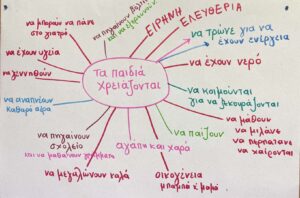 να μπορούν να πάνε
στο γιατρό
να πηγαίνουν βόλτες
ΕΙΡΗΝΗ
ΕΛΕΥΘΕΡΙΑ
να τρώνε για να
έχουν ενέργεια
να έχουν υγεία
να γεννηθούν
Τα παιδιά
χρειάζονται
να έχουν νερό
να αναπνέουν
καθαρό αέρα
να κοιμούνται
για να ξεκουράζονται
να πηγαίνουν
σχολείο
και να μαθαίνουν γράμματα
αγάπη και χαρά
να παίζουν
να μάθουν
να μιλάνε
να περπατάνε
να χαίρονται
να μεγαλώνουν καλά
οικογένεια
μπαμπά κ' μαμά